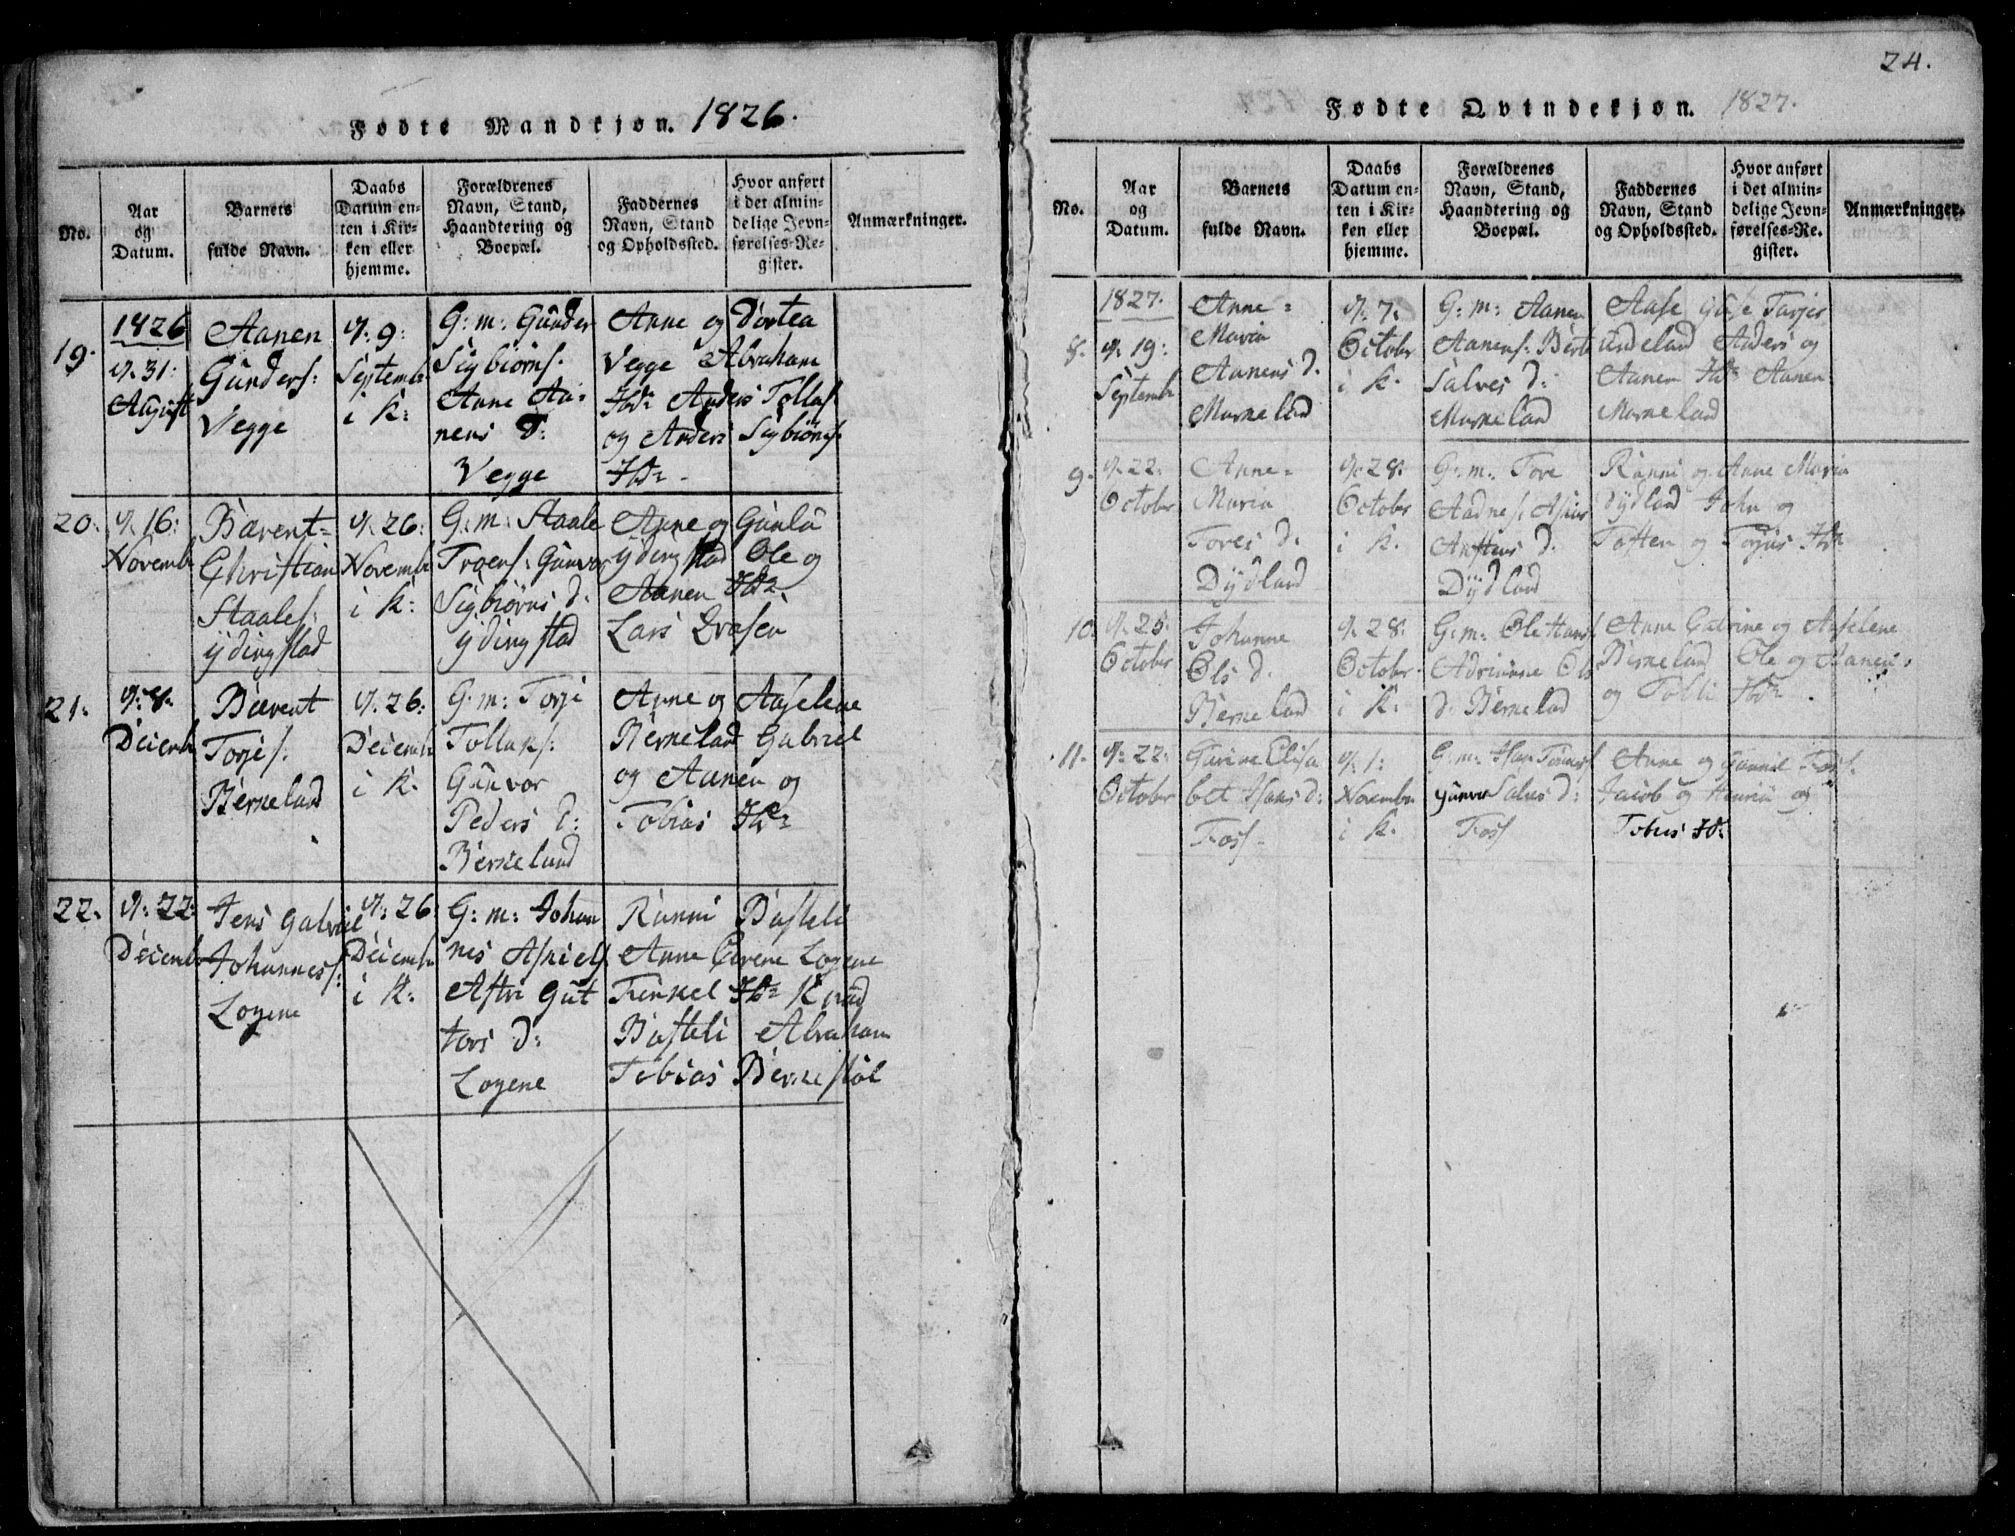 Fødte Mandkjøn. 1826.
No.
Aar
og
Datum.
Barnets
fulde Navn.
Daabs
Datum en-
ten i Kir-
ken eller
hjemme.
Forældrenes
Navn, Stand,
Haandtering og
Boepæl.
Faddernes
Navn, Stand
og Opholdssted.
Hvor anført
i det almin-
delige Jevn-
førelses-Re-
gister.
Anmærkninger.
19.
1826
d. 31:
August
Aanen
Gunders:
Vegge
d. 9:
Septembr
i K:
G: m: Gunder
Sigbiørns:
Anne Aa-
nens D:
Vegge
Anne og Dortea
Vegge Abraham
Ibdm Anders Tollas
og Anders Sigbiørns:
Ibdm
20.
d. 16:
Novembr
Bærent-
Christian
Staales:
Ydingstad
d. 26:
Novembr
i K:
G: m: Staale
Troens: Gunvor
Sigbiørns d.
Ydingstad
Anne og Gunlu
Ydingstad Ole og
Aanen Ibdm
Lars
21.
d: 8.
Decembr
Bærent
Torjes:
Berneland
d. 26:
Decembr
i K.
G. m: Torje
Tollaks:
Gunvor
Peders D:
Berneland
Anne og Aaselene
Berneland Gabriel
og Aanen og
Tobias Ibdm
22.
d: 22:
Decembr
Jens Gabriel
Johanness:
Logene
d. 26
Decembr
i K.
G: m: Johan
nes Asriels
Astri Gut
tors D:
Logene
Ranni Busteli
Anne Serene Logene
Tienkel Ibdm Knud
Busteli Abraham
Tobias Bernestøl
24.
Fødte Qvindekjøn. 1827.
No.
Aar
og
Datum.
Barnets
fulde Navn.
Daabs
Datum en-
ten i Kir-
ken eller
hjemme.
Forældrenes
Navn, Stand,
Haandtering og
Boepæl.
Faddernes
Navn, Stand
og Opholdssted.
Hvor anført
i det almin-
delige Jevn-
førelses-Re-
gister.
Anmærkninger.
8.
1827.
d. 19:
Septembr
Anne-
Maria
Aanens d.
Murneland
d. 7.
Octobr
i K.
G: m: Aanen
Aanens: Berte
Salves d:
Murneland
Aase Torjer
Anders og
Aanen Ibdm Aanen
Murneland
9.
d. 22:
Octobr
Anne-
Maria
Tores d.
Dydland
d. 28:
Octobr
i K.
G: m: Tore
Aadnes:
Anstens d.
Dydland
Ranni og Anne Maria
Dydland John og
Tosten og Torjus Ibdm
10.
d. 25:
October
Johanne
Ols d.
Berneland
d. 28:
October
i K.
G: m: Ole Hans:
Adrianne Ols
d. Berneland
Anne Catrine og Aaselene
Berneland Ole og Aanen
og Tolli Ibdm
11.
d. 22:
October
Gurine Elisa
bet Hans d:
Foss.
d: 1:
Novembr
i K.
G. m: Hans
Gunvor Salves d:
Foss
Anne og Gunnil Foss.
Jacob og Henrik og
Tobias Ibd: